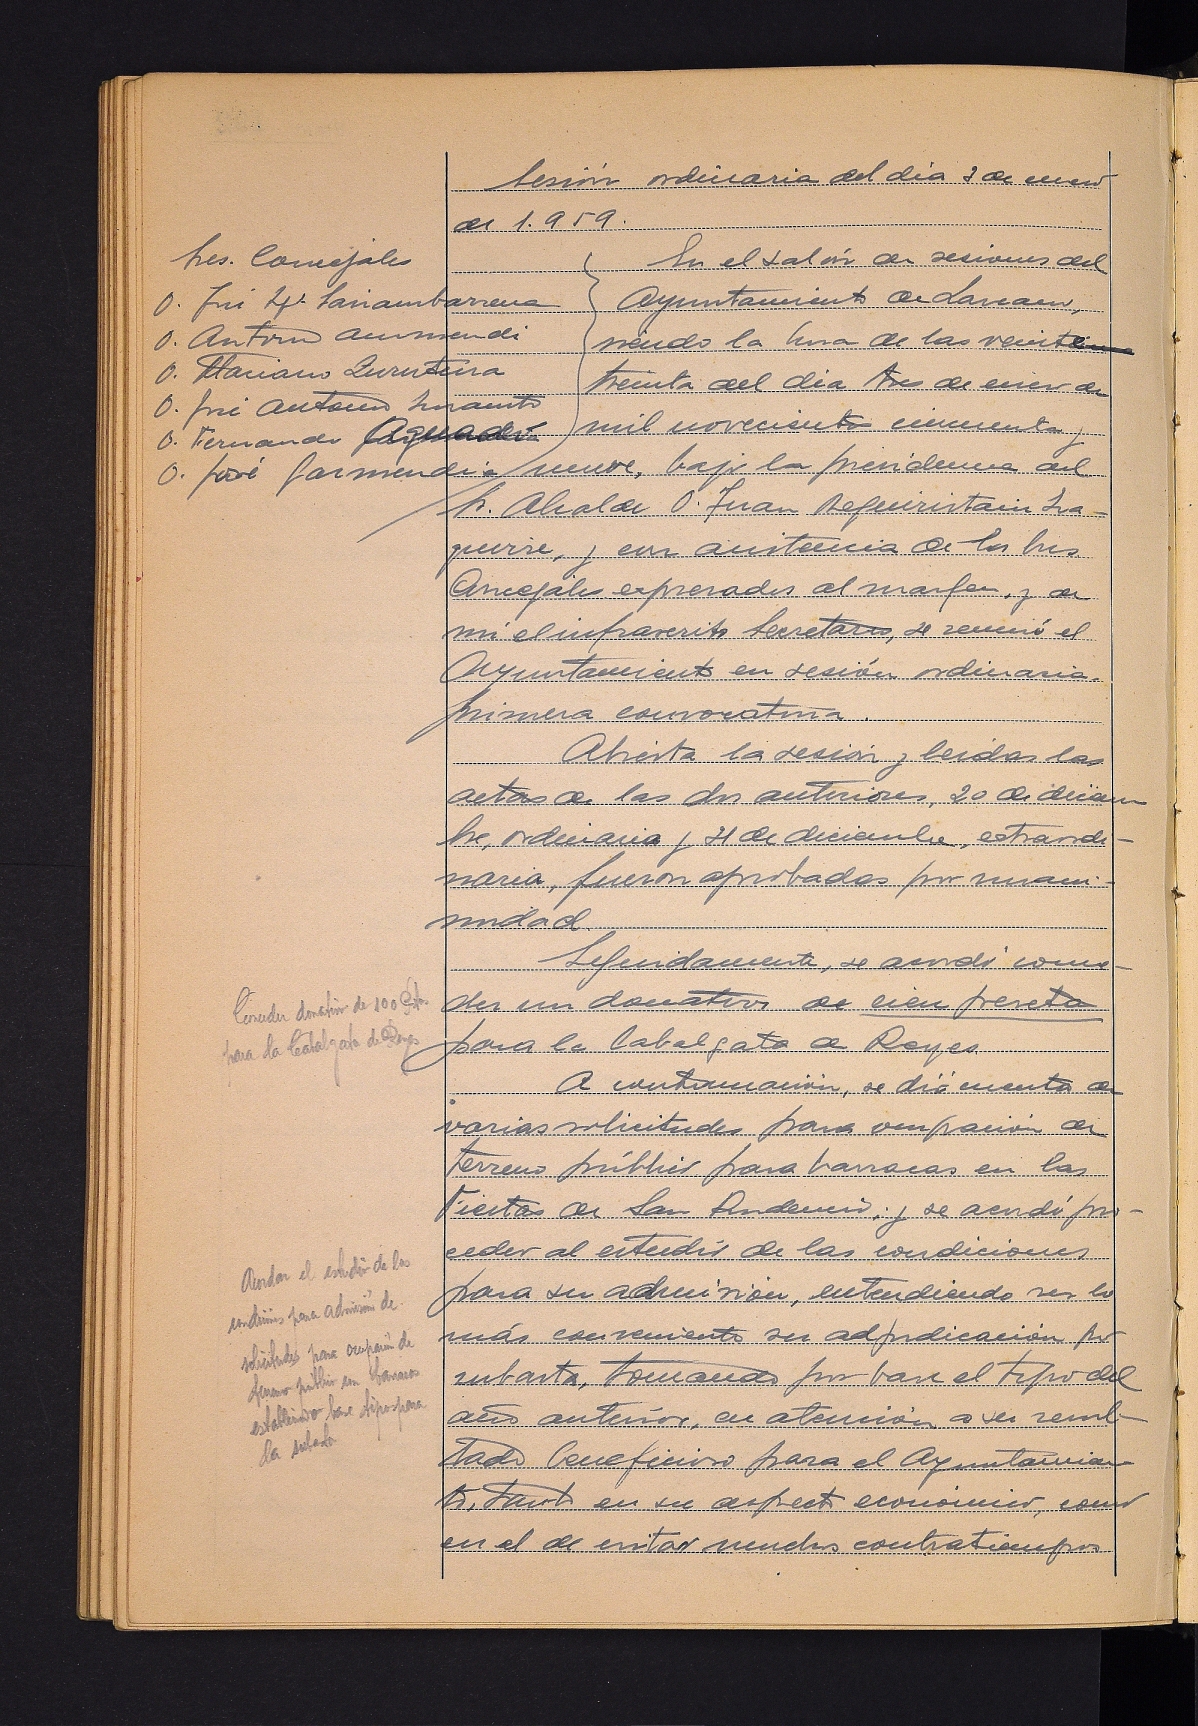 Sesión ordinaria del dia 3 de enero
de 1.959.
Sres. Concejales
D. José Mª Lariambarrena
D. Antonio Aurmendi
D. Mariano Zurutuza
D. José Antonio
D. Fernando Aguado
D. José Garmendia
En el salón de sesiones del
Ayuntamiento de Lazcano,
siendo la hora de las veinte
treinta del dia tres de enero de
mil novecientos cincuenta y
nueve, bajo la presidencia del
Sr. Alcalde D. Juan Reguiristain Iza-
guirre, y con asistencia de los Sres.
Concejales expresados al margen, y de
mi el infrascrito Secretario, se reunió el
Ayuntamiento en sesión ordinaria.
primera convocatoria.
Abierta la sesión y leidas las
actas de las dos anteriores, 20 de diciem
bre, ordinaria y 31 de diciembre, extraordi-
naria, fueron aprobadas por unani-
midad.
Seguidamente, se acordó conce-
der un donativo de cien peseta
para la Cabalgata de Reyes
A continuación, se dió cuenta de
varias solicitudes para ocupación de
terreno público para barracas en las
Fiestas de San Prudencio; y se acordó pro-
ceder al estudio de las condiciones
para su admisión, entendiendo ser lo
más conveniente su adjudicación por
subasta, tomando por base el tipo del
año anterior, en atención a su resul-
tado beneficioso para el Ayuntamien-
to, tanto en su aspecto económico, como
en el de evitar muchos contratiempos
Conceder donativo de 100 Pts.
para la Cabalgata de Reyes
Acordar el estudio de las
condiciones para admisión de
solicitudes para ocupación de
terreno público con barracas
estableciendo base tipos para
la subasta